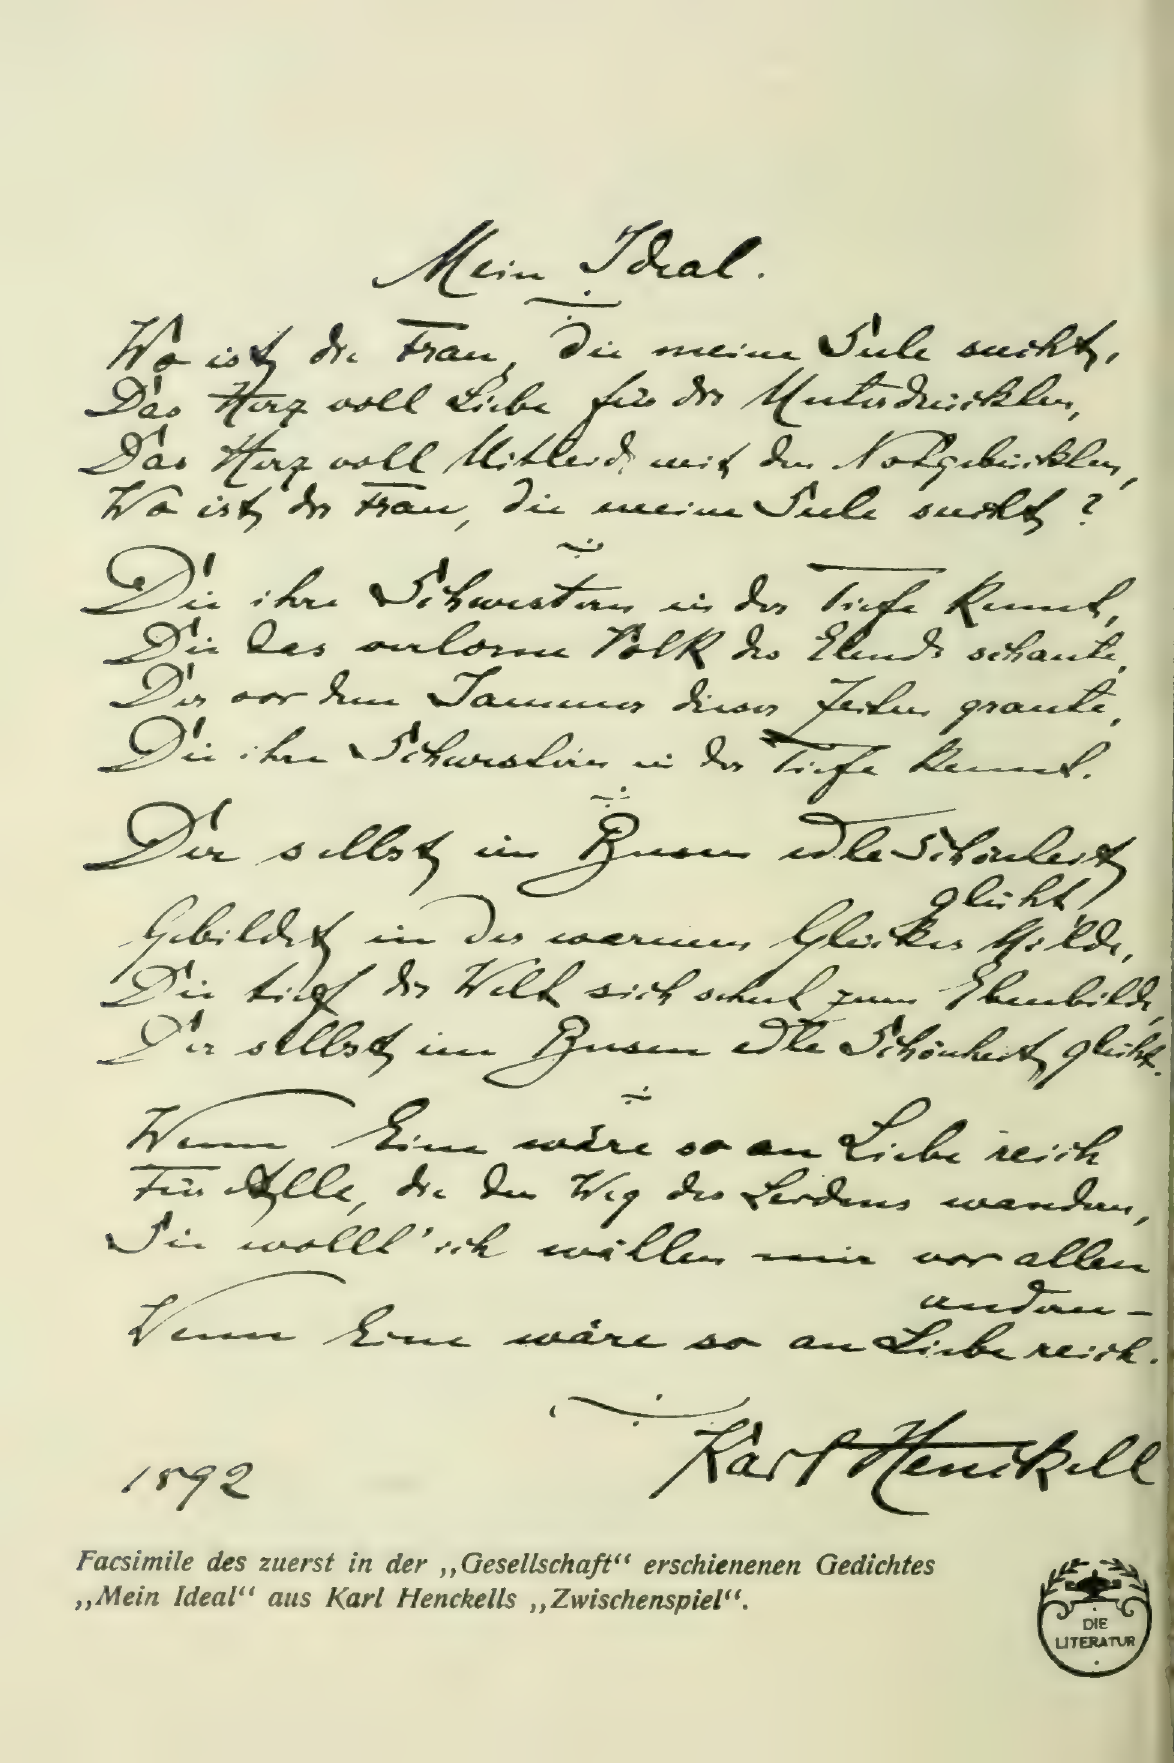 Mein Ideal.
Wo ist die Frau, die meine Seele sucht,
Das Herz voll Liebe für die Unterdrückten,
Das Herz voll Mitleid mit den Notgebückten,
Wo ist die Frau, die meine Seele sucht?
Die ihre Schwestern in der Tiefe kennt,
Die das verlorne Volk des Elends schaute,
Der vor dem Jammer dieser Zeiten graute,
Die ihre Schwestern in der Tiefe kennt.
Der selbst im Busen edle Schönheit
glüht,
Gebildet in des warmen Glückes Milde,
Die tief die Welt sich schuf zum Ebenbilde,
Der selbst im Busen edle Schönheit glüht.
Wenn Eine wäre so an Liebe reich
Für Alle, die den Weg des Leidens wandern,
Sie wollt' ich wählen mir vor allen
andern –
Wenn Eine wäre so an Liebe reich.
Karl Henckell
1892
Facsimile des zuerst in der „Gesellschaft“ erschienenen Gedichtes
„Mein Ideal“ aus Karl Henckells „Zwischenspiel“.
DIE
LITERATUR